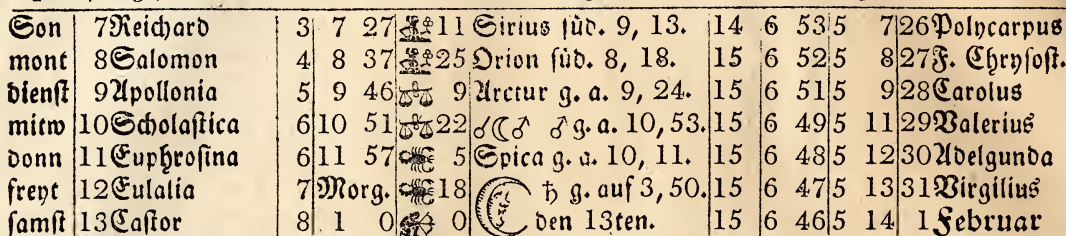 Son 7 Reichard 3 7 27 11 Sirius süd. 9, 13. 14 6 53 5 7 26 Polycarpus
mont 8 Salomon 4 8 37 25 Orion süd. 8, 18. 15 6 52 5 8 27 F. Chrysost.
dienst 9 Apollonia 5 9 46 ♎ 9 Arctur g. a. 9, 24. 15 6 51 5 9 28 Carolus
mitw 10 Scholastica 6 10 51 ♎ 22 ☌☾♂ ♂ g. a. 10, 53. 15 6 49 5 11 29 Valerius
donn 11 Euphrosina 6 11 57 ♏ 5 Spica g. a. 10, 11. 15 6 48 5 12 30 Adelgunda
freyt 12 Eulalia 7 Morg. ♏ 18 ♄ g. auf 3, 50. 15 6 47 5 13 31 Virgilius
samst 13 Castor 8 1 0 ♐ 0 den 13ten. 15 6 46 5 14 1 Februar